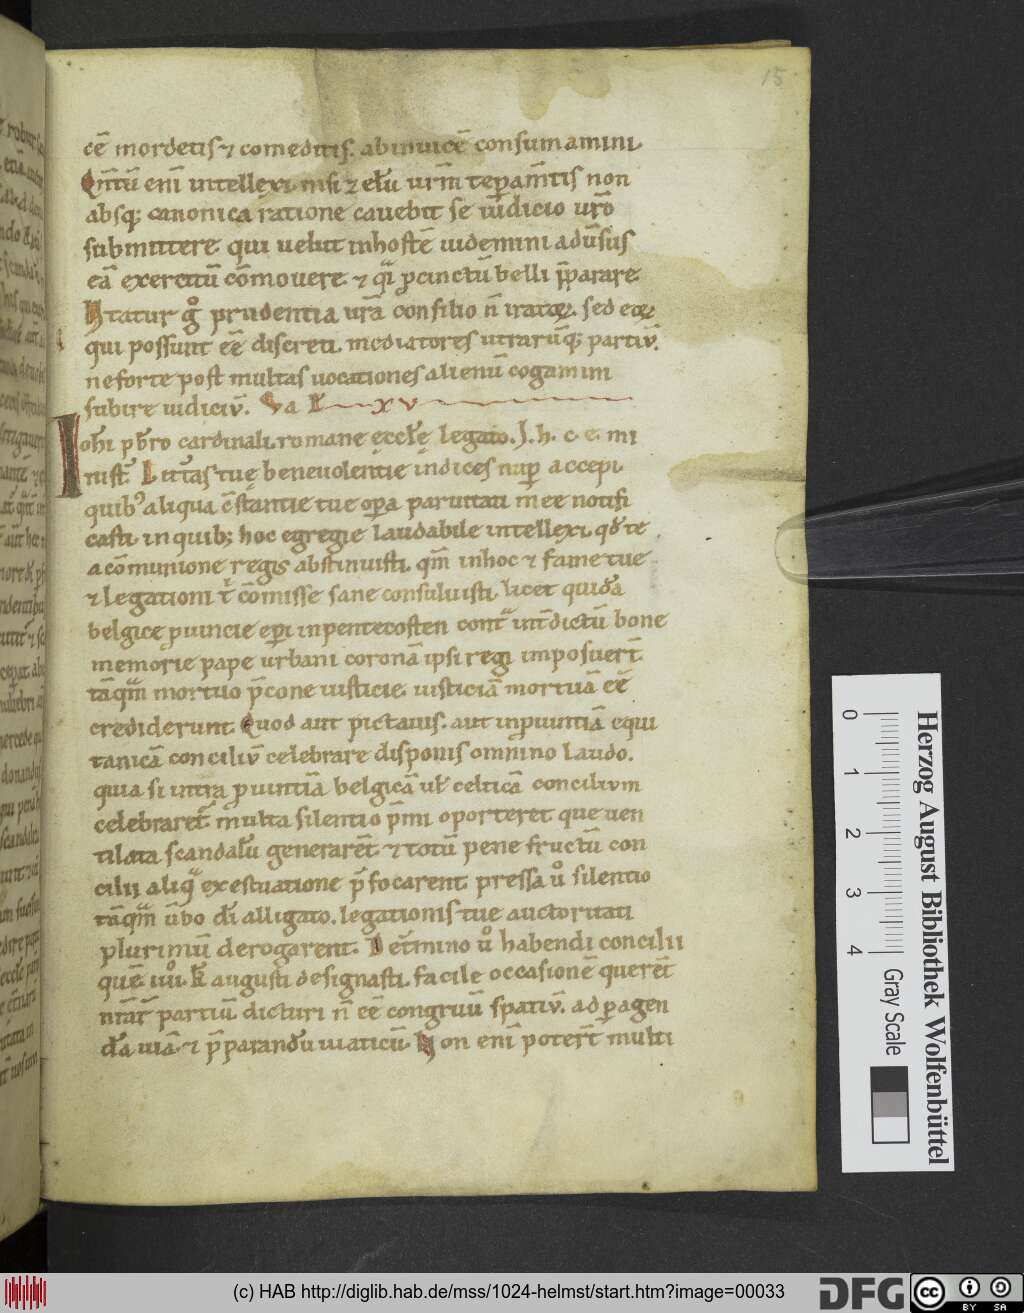 15
cē mordetis ⁊ comeditis. abinuicē consumamini.
Qntū enī intellexi nisi ⁊ eltu urm̄ tēperam̄tis non
absq; canonica ratione cauebit se iudicio uro
submittere qui uelut inhostē uidemini aduersus
eā exercitū cōmouere. ⁊ qͣi pcinctū belli p̄parare.
Utatur gͦ prudentia urā consilio n̄ iratoꝝ. sed eoꝝ
qui possunt eē discreti mediatores utrarūq; partiū.
neforte post multas uocationes alienū cogamini
subire iudiciū. Va ł xv
Iohi pbro cardinali. romane eccłe legato. I. h. c. e. mi
nist. Litt̄as tue beneuolentie indices nup accepi.
quibꝰ aliqua c̄stantie tue opa paruitati mee notifi
casti. in quib; hoc egregie laudabile intellexi. qđ te
acōmunione regis abstinuisti. qm̄ inhoc ⁊ fame tue
⁊ legationi t̄ cōmisse sane consuluisti. licet quidā
belgice puincie epi inpentecosten contͣ int̄dictū bone
memorie pape urbani coronā ipsi regi imposuer̄t.
tāqͣm mortuo p̄cone iusticie. iusticiā mortuā eē
crediderunt. Quod aut pictauis. aut inpuintiā equi
tanicā conciliū celebrare disponis omnino laudo.
quia si intra puintiā belgicā uł celticā concilium
celebraret̄. multa silentio p̄mi oporteret que uen
tilata scandalū generarēt. ⁊ totū pene fructū con
cilii aliqͣ exestuatione p̄focarent. pressa uͦ silentio
tāqͣm ūbo dī alligato. legationis tue auctoritati
plurimū derogarent. De t̄mino uͦ habendi concilii
quē .iiiiͦ. k̄ augusti designasti. facile occasionē querēt
nr̄ar̄ partiū dicturi n̄ eē congruū spatiū. ad pagen
dā uiā. ⁊ p̄parandū uiaticū. Non enī poter̄t multi
Herzog August Bibliothek Wolfenbüttel
0 1 2 3 4
Gray Scale
(c) HAB http://diglib.hab.de/mss/1024-helmst/start.htm?image=00033
DFG
cc BY SA